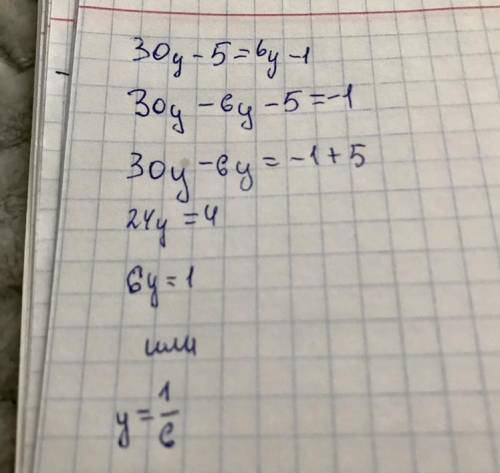 30y - 5 = 6y - 1
30y - 6y - 5 = -1
30y - 6y = -1 + 5
24y = 4
6y = 1
или
y = 1/6